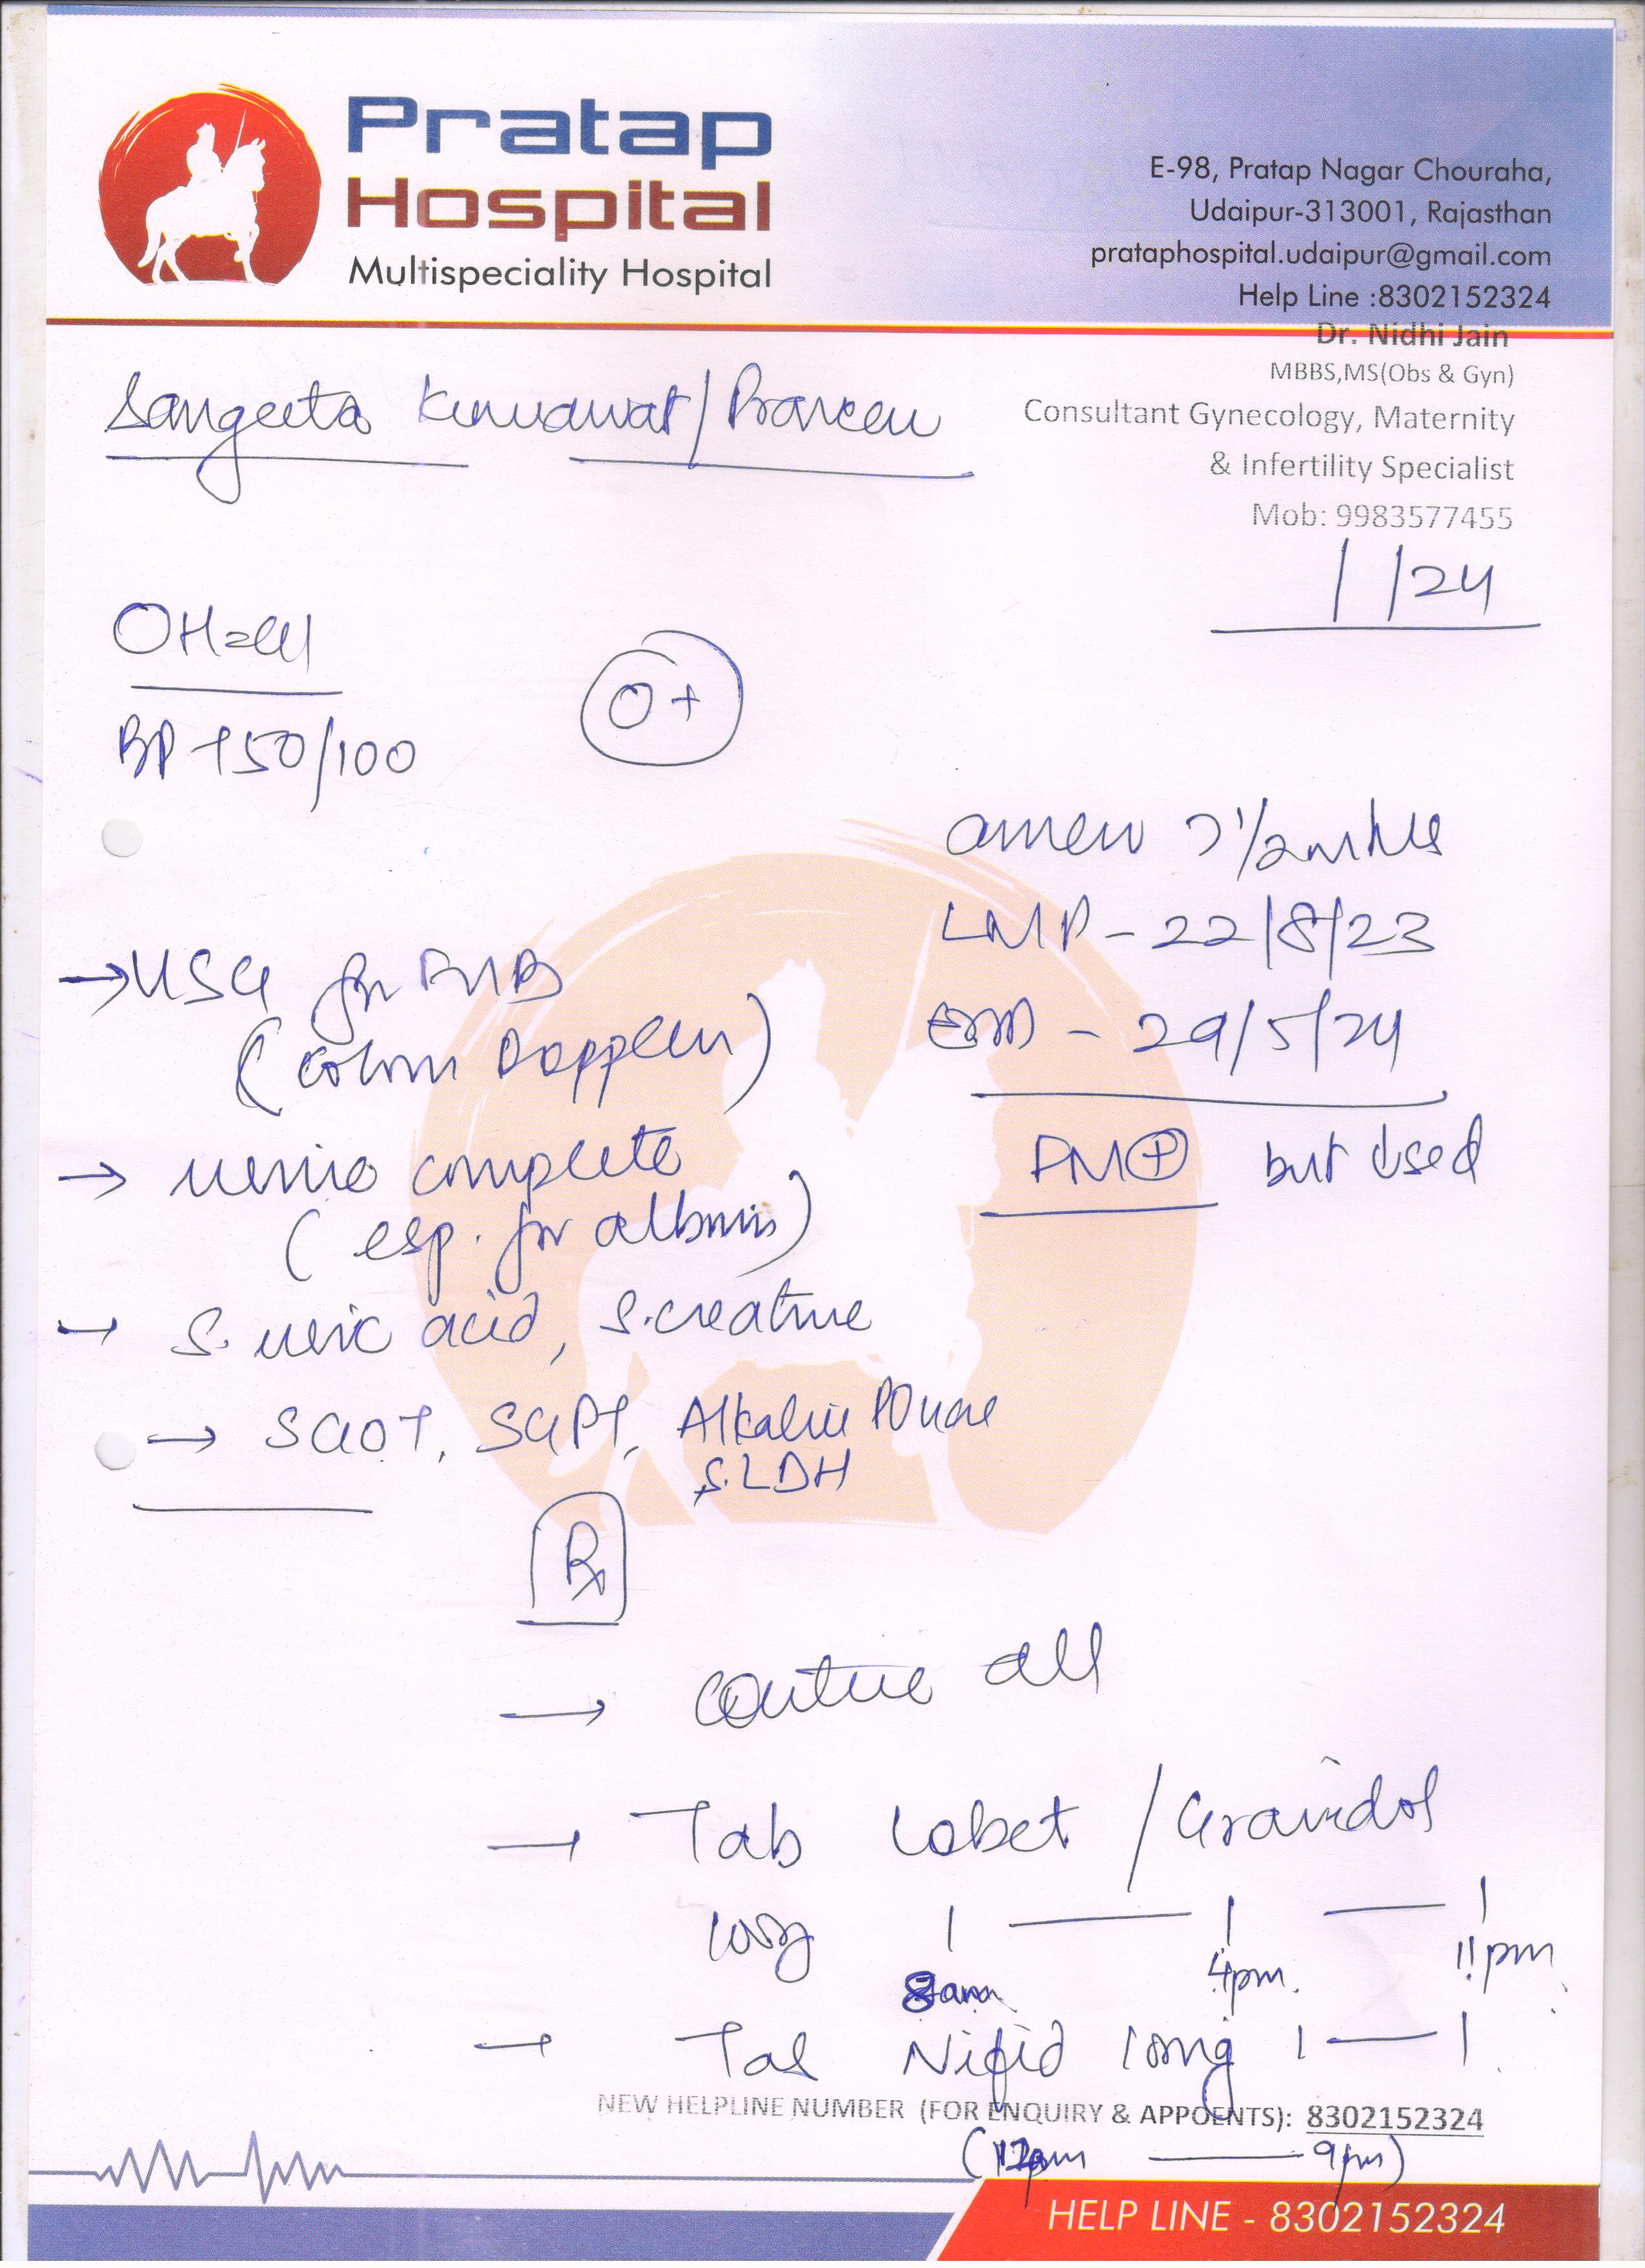 Pratap
Hospital
Multispeciality Hospital
E-98, Pratap Nagar Chouraha,
Udaipur-313001, Rajasthan
prataphospital.udaipur@gmail.com
Help Line :8302152324
Dr. Nidhi Jain
MBBS,MS(Obs & Gyn)
Consultant Gynecology, Maternity
& Infertility Specialist
Mob: 9983577455
Sangeeta Kumawat/Praveen
/ /24
O+
BP 150/100
LMP - 22/8/23
EDD - 29/5/24
→ USG for
(colour Doppler)
FM⊕ but
→ urine complete
(esp. for albumin)
→ S. uric acid, S.creatine
→ SGOT, SGPT, Alkaline
S.LDH
Rx
→ continue all
→ Tab Lobet / Gravidol
1 — 1 — 1
8am 4pm. 11pm
→ Tab Nifid 10mg 1 — 1
NEW HELPLINE NUMBER (FOR ENQUIRY & APPOENTS): 8302152324
— 9pm)
HELP LINE - 8302152324